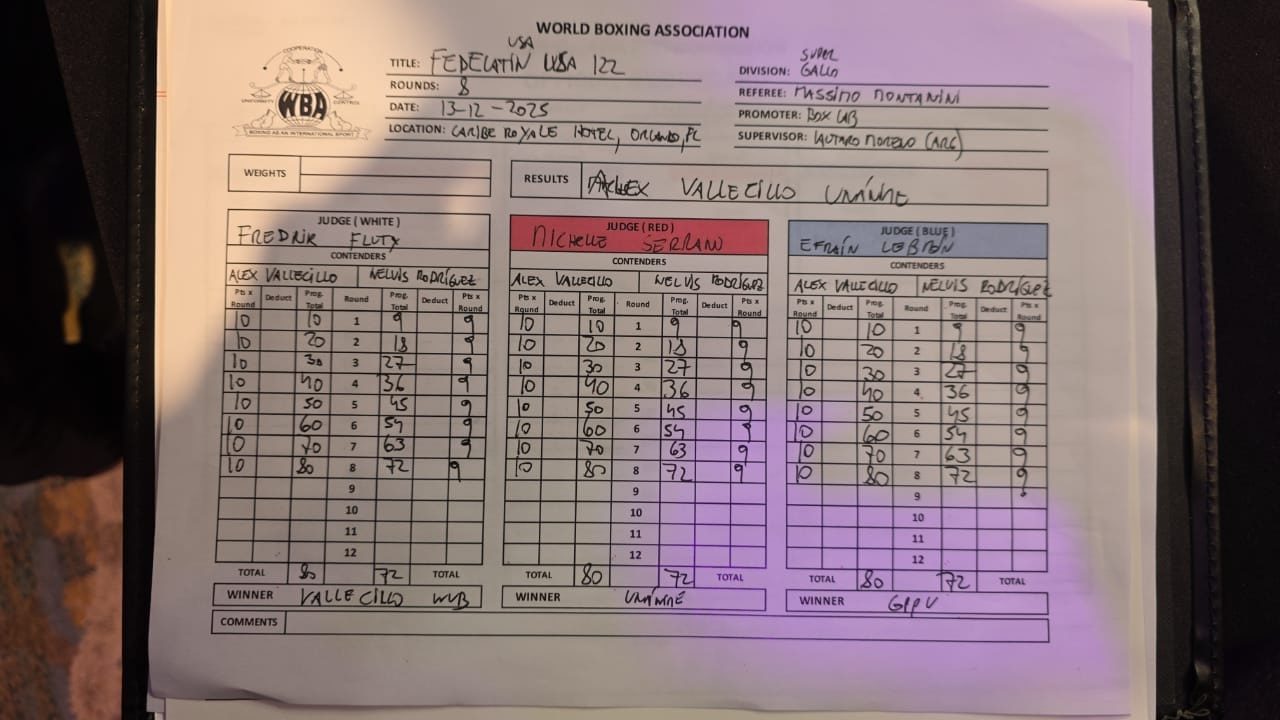 WORLD BOXING ASSOCIATION
COOPERATION
UNIFORMITY CONTROL
WBA
BOXING AS AN INTERNATIONAL SPORT
USA
TITLE: FEDELATÍN USA 122
ROUNDS: 8
DATE: 13-12-2025
LOCATION: CARIBE ROYALE HOTEL, ORLANDO, FL
SUPER
DIVISION: GALLO
REFEREE: MASSIMO MONTANINI
PROMOTER: BOX LAB
SUPERVISOR: LAUTARO MORENO (ARG)
WEIGHTS
RESULTS ALEX VALLECILLO UNÁNIME
JUDGE ( WHITE )
FREDRIK FLUTY
CONTENDERS
ALEX VALLECILLO NELVIS RODRÍGUEZ
Pts x Round Deduct Prog. Total Round Prog. Total Deduct Pts x Round
10 10 1 9 9
10 20 2 18 9
10 30 3 27 9
10 40 4 36 9
10 50 5 45 9
10 60 6 54 9
10 70 7 63 9
10 80 8 72 9
9
10
11
12
TOTAL 80 72 TOTAL
WINNER VALLECILLO
JUDGE ( RED )
MICHELLE SERRANO
CONTENDERS
ALEX VALLECILLO NELVIS RODRÍGUEZ
Pts x Round Deduct Prog. Total Round Prog. Total Deduct Pts x Round
10 10 1 9 9
10 20 2 18 9
10 30 3 27 9
10 40 4 36 9
10 50 5 45 9
10 60 6 54 9
10 70 7 63 9
10 80 8 72 9
9
10
11
12
TOTAL 80 72 TOTAL
WINNER UNÁNIME
JUDGE ( BLUE )
EFRAÍN LEBRÓN
CONTENDERS
ALEX VALLECILLO NELVIS RODRÍGUEZ
Pts x Round Deduct Prog. Total Round Prog. Total Deduct Pts x Round
10 10 1 9 9
10 20 2 18 9
10 30 3 27 9
10 40 4 36 9
10 50 5 45 9
10 60 6 54 9
10 70 7 63 9
10 80 8 72 9
9
10
11
12
TOTAL 80 72 TOTAL
WINNER
COMMENTS